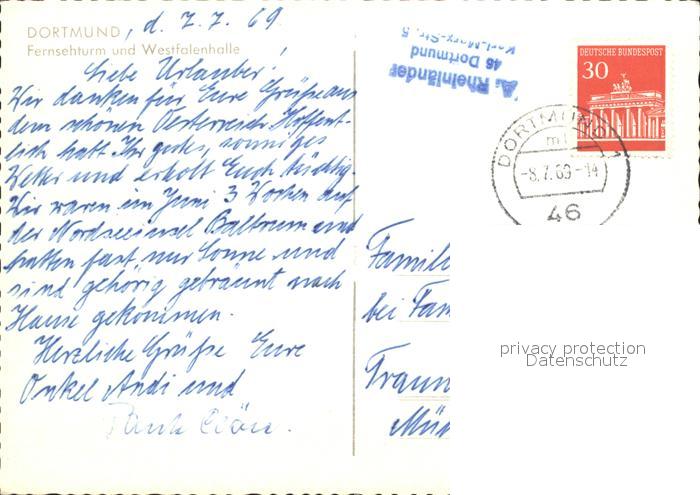 DORTMUND, d. 7.7.69.
Fernsehturm und Westfalenhalle
Liebe Urlauber!
Wir danken für Eure Grüße aus
dem schönen Oesterreich. Hoffent-
lich hatt Ihr gutes, sonniges
Wetter und erholt Euch tüchtig.
Wir waren im Juni 3 Wochen auf
der Nordseeinsel Baltrum und
hatten fast nur Sonne und
sind gehörig gebräunt nach
Hause gekommen.
Herzliche Grüße Eure
Onkel Andi und
A. Rheinländer
46 Dortmund
Karl-Marx-Str. 5
DEUTSCHE BUNDESPOST
30
DORTMUND 1
-8.7.69-14
46
Famil
bei Fam
Traun
privacy protection
Datenschutz